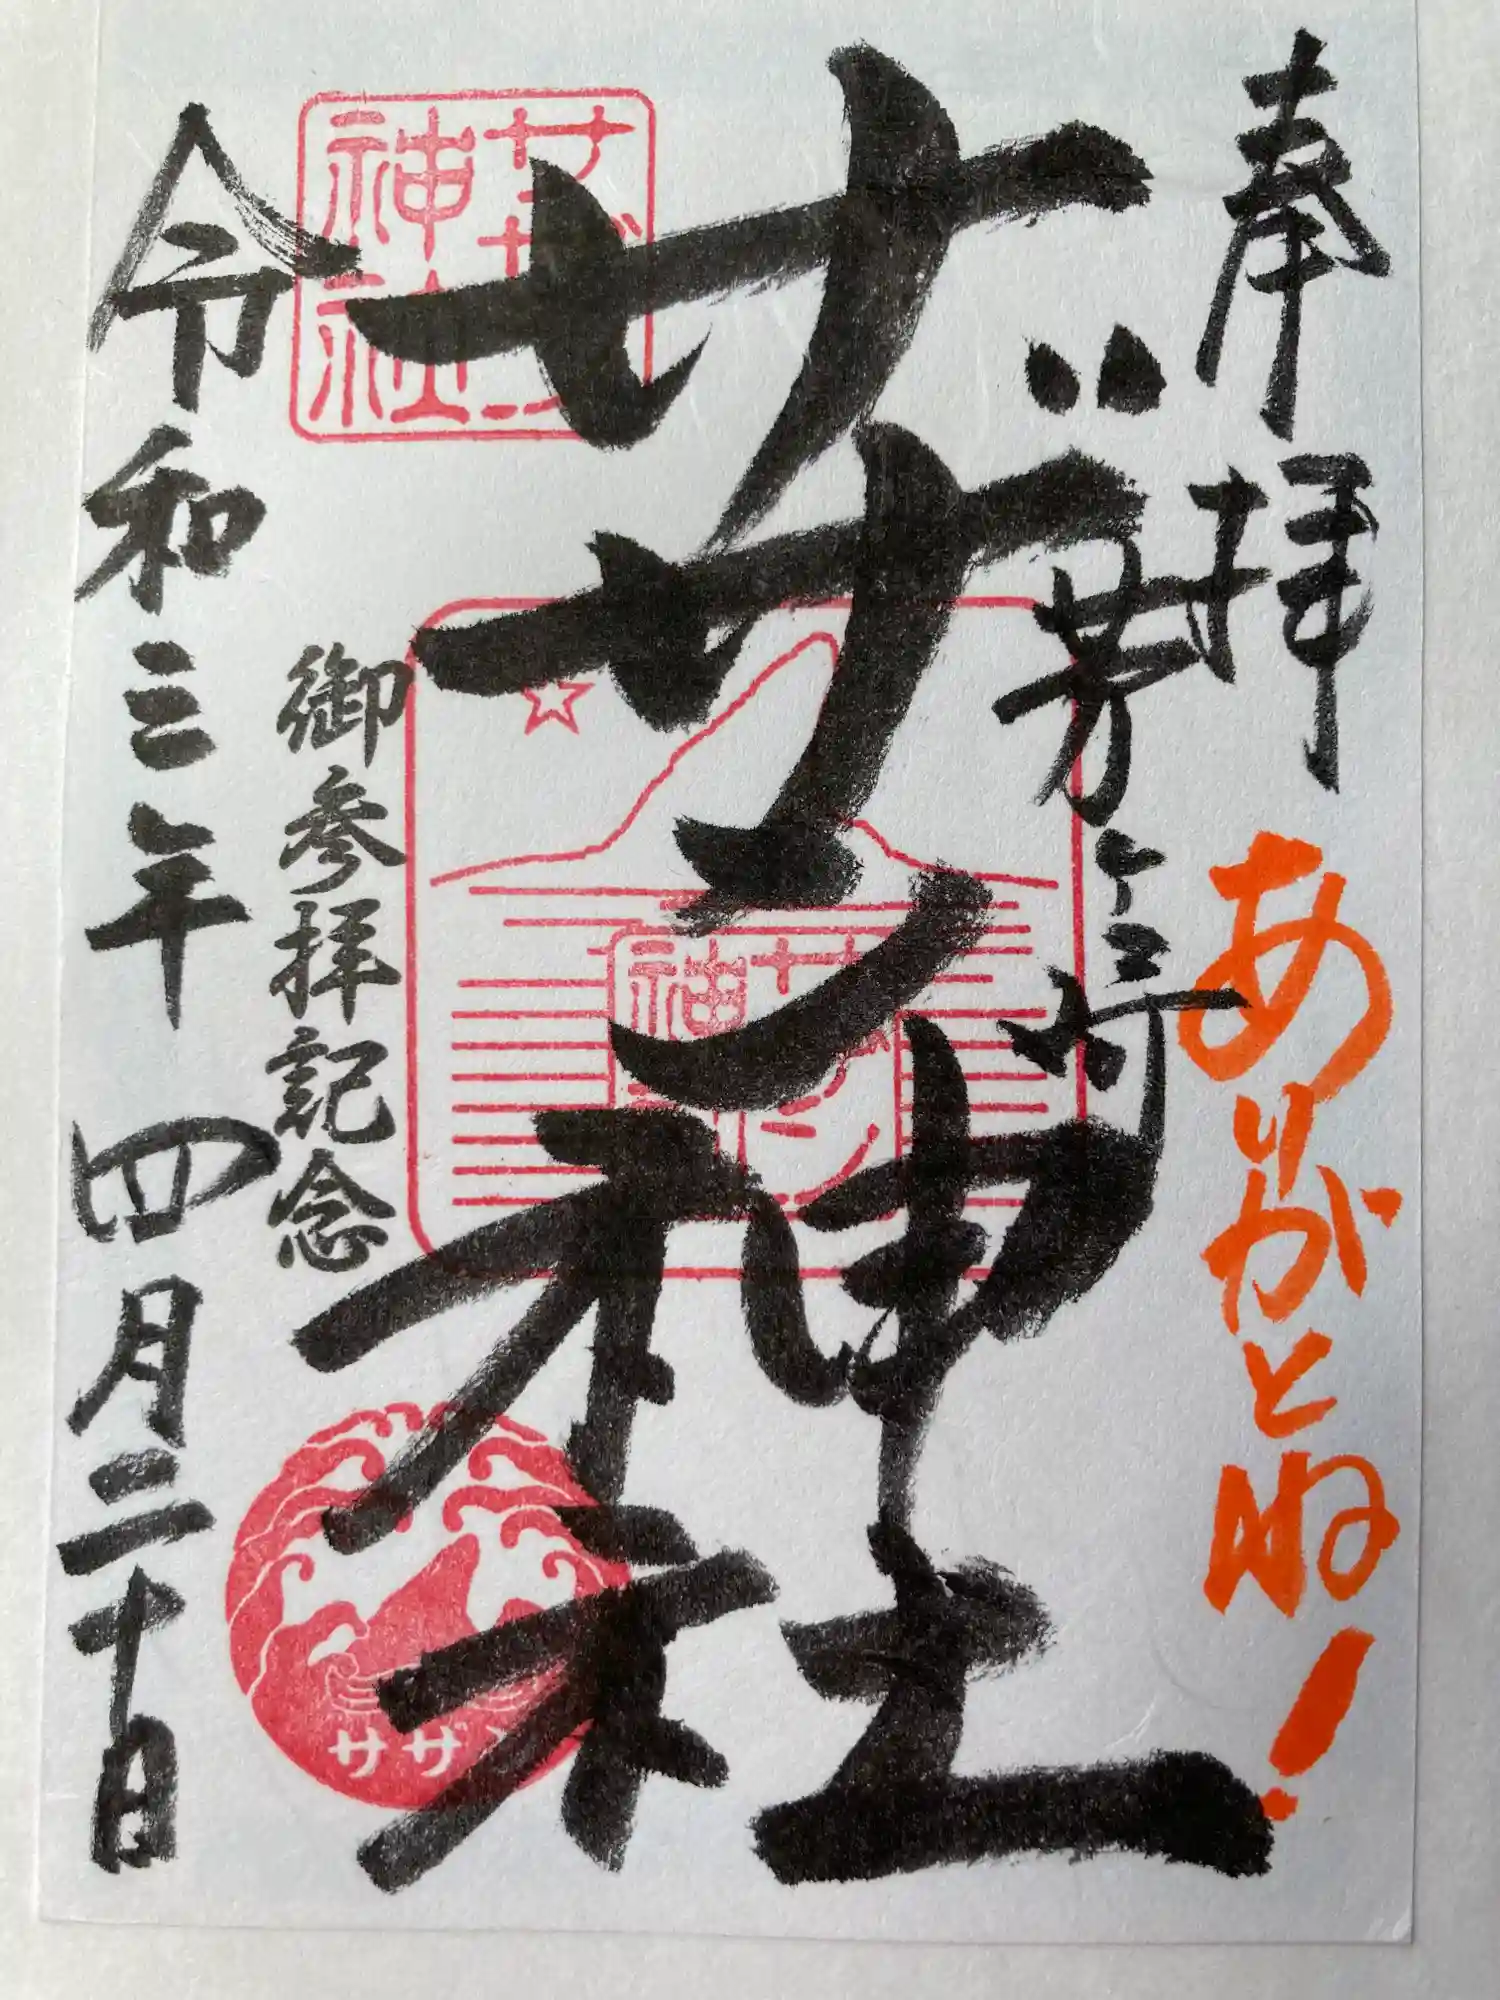 奉拝
ありがとね!
茅ヶ崎
サザン神社
御参拝記念
令和三年 四月二十日
サザン
神社
サザン
神
サザン